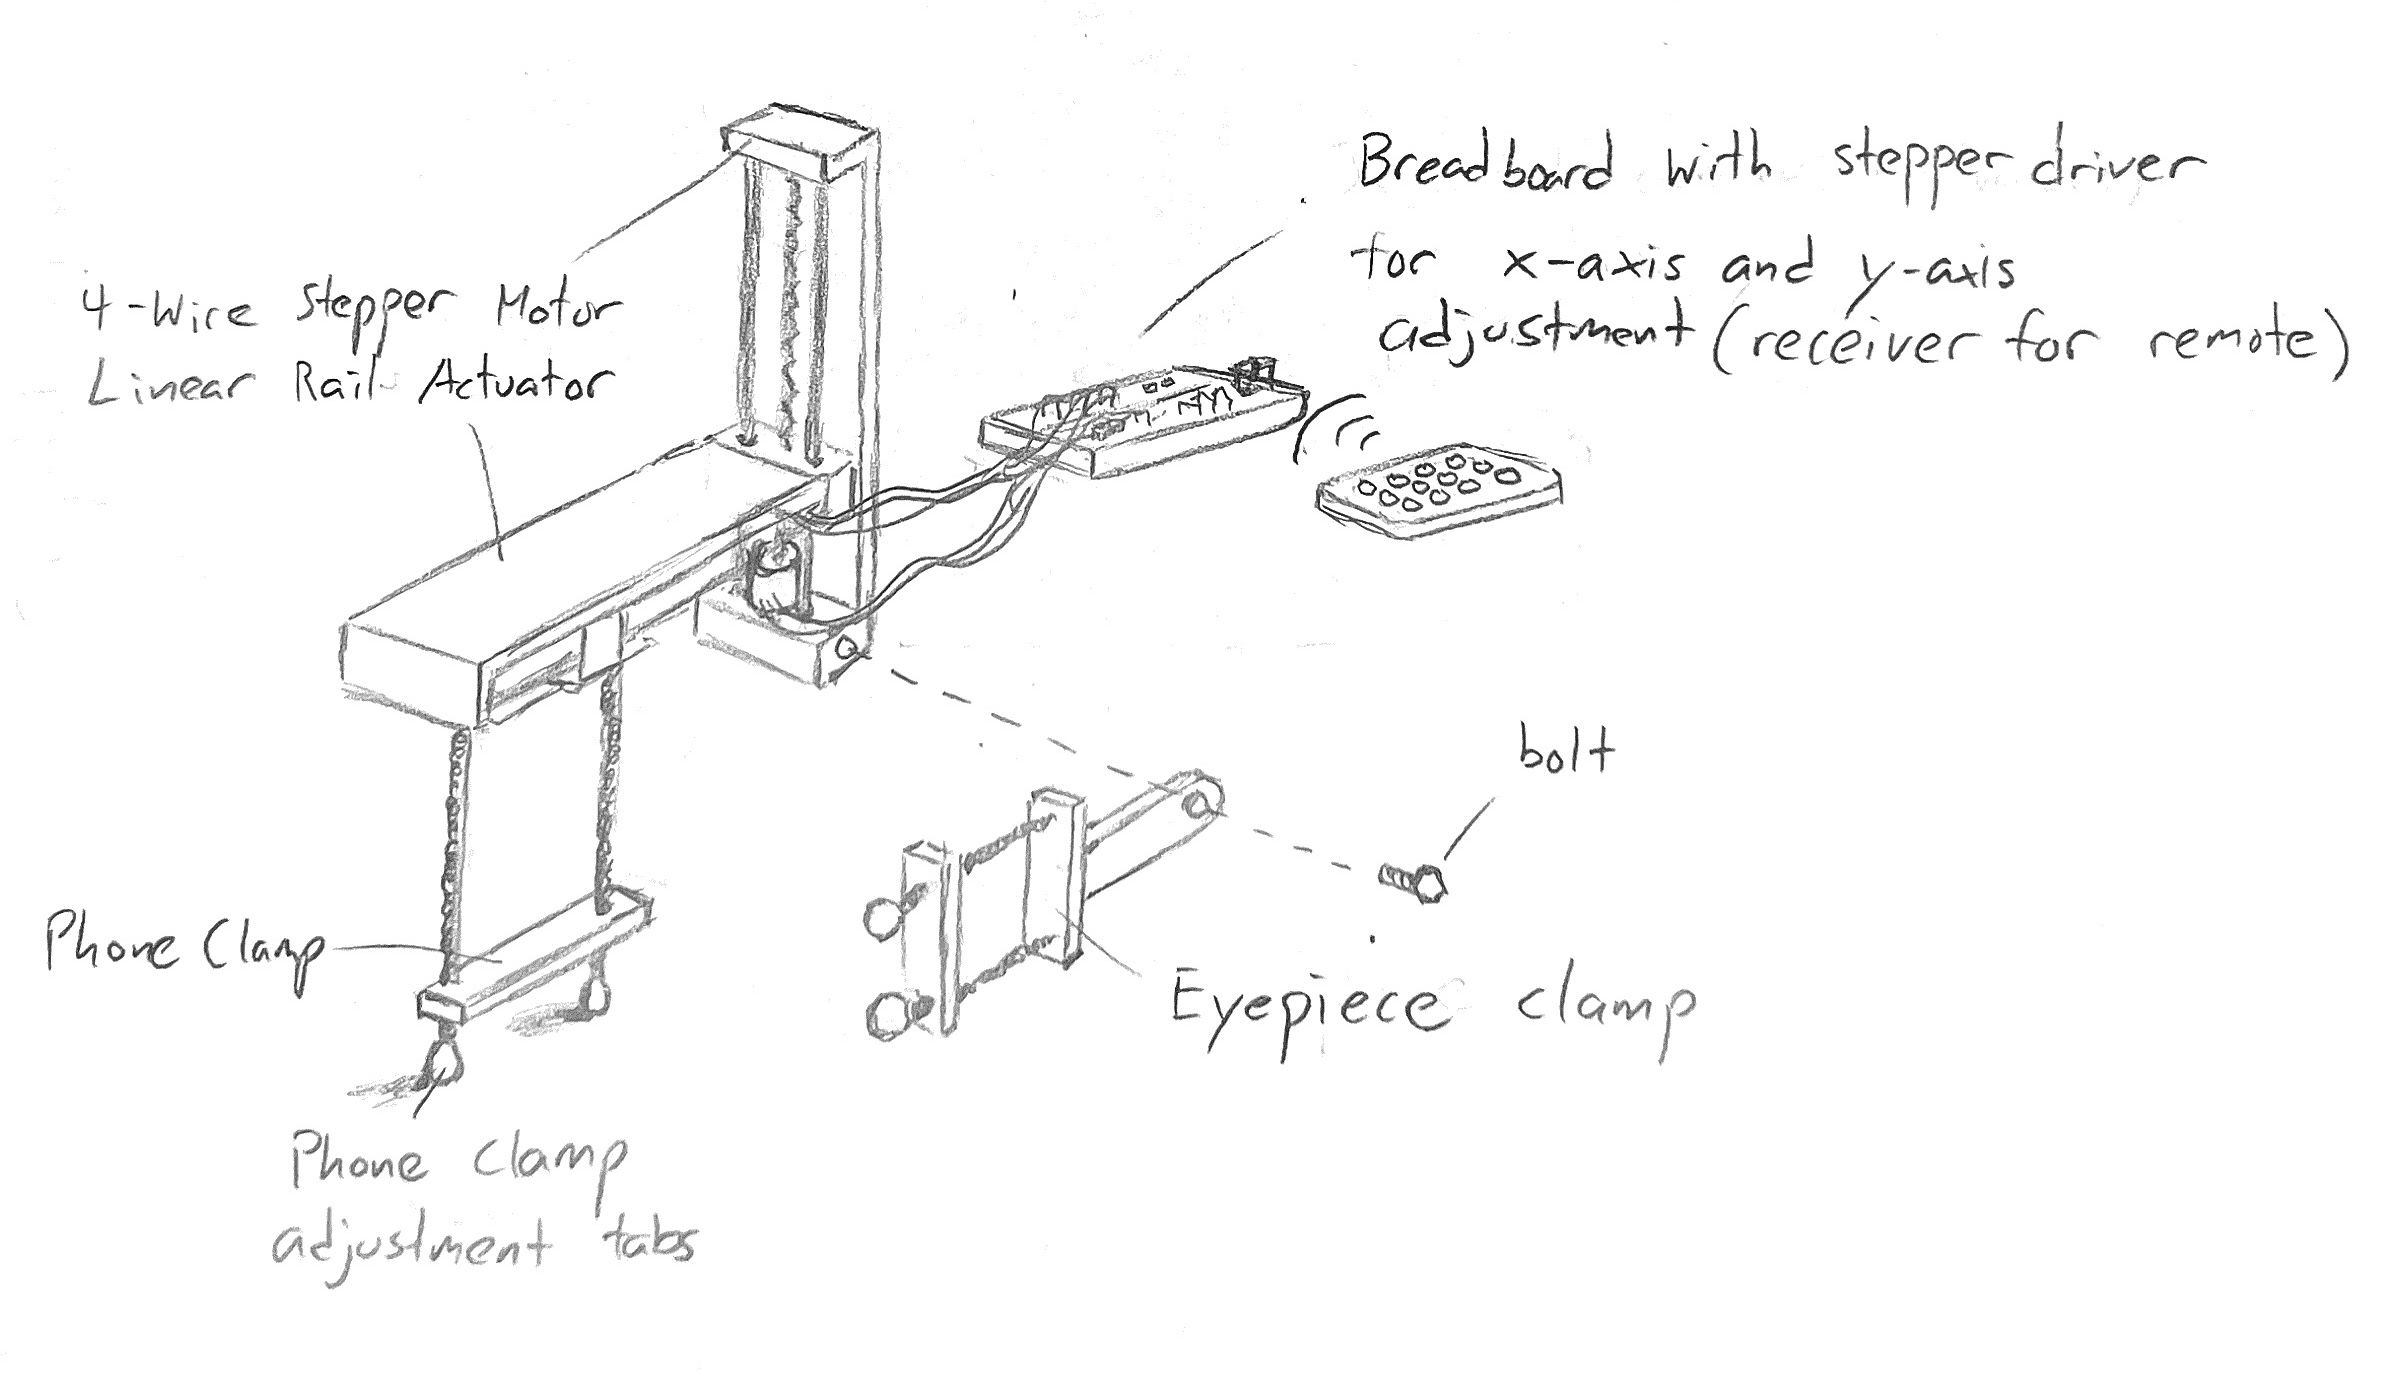 Breadboard with stepper driver
for x-axis and y-axis
adjustment (receiver for remote)
4-Wire Stepper Motor
Linear Rail Actuator
bolt
Phone Clamp
Eyepiece clamp
Phone Clamp
adjustment tabs